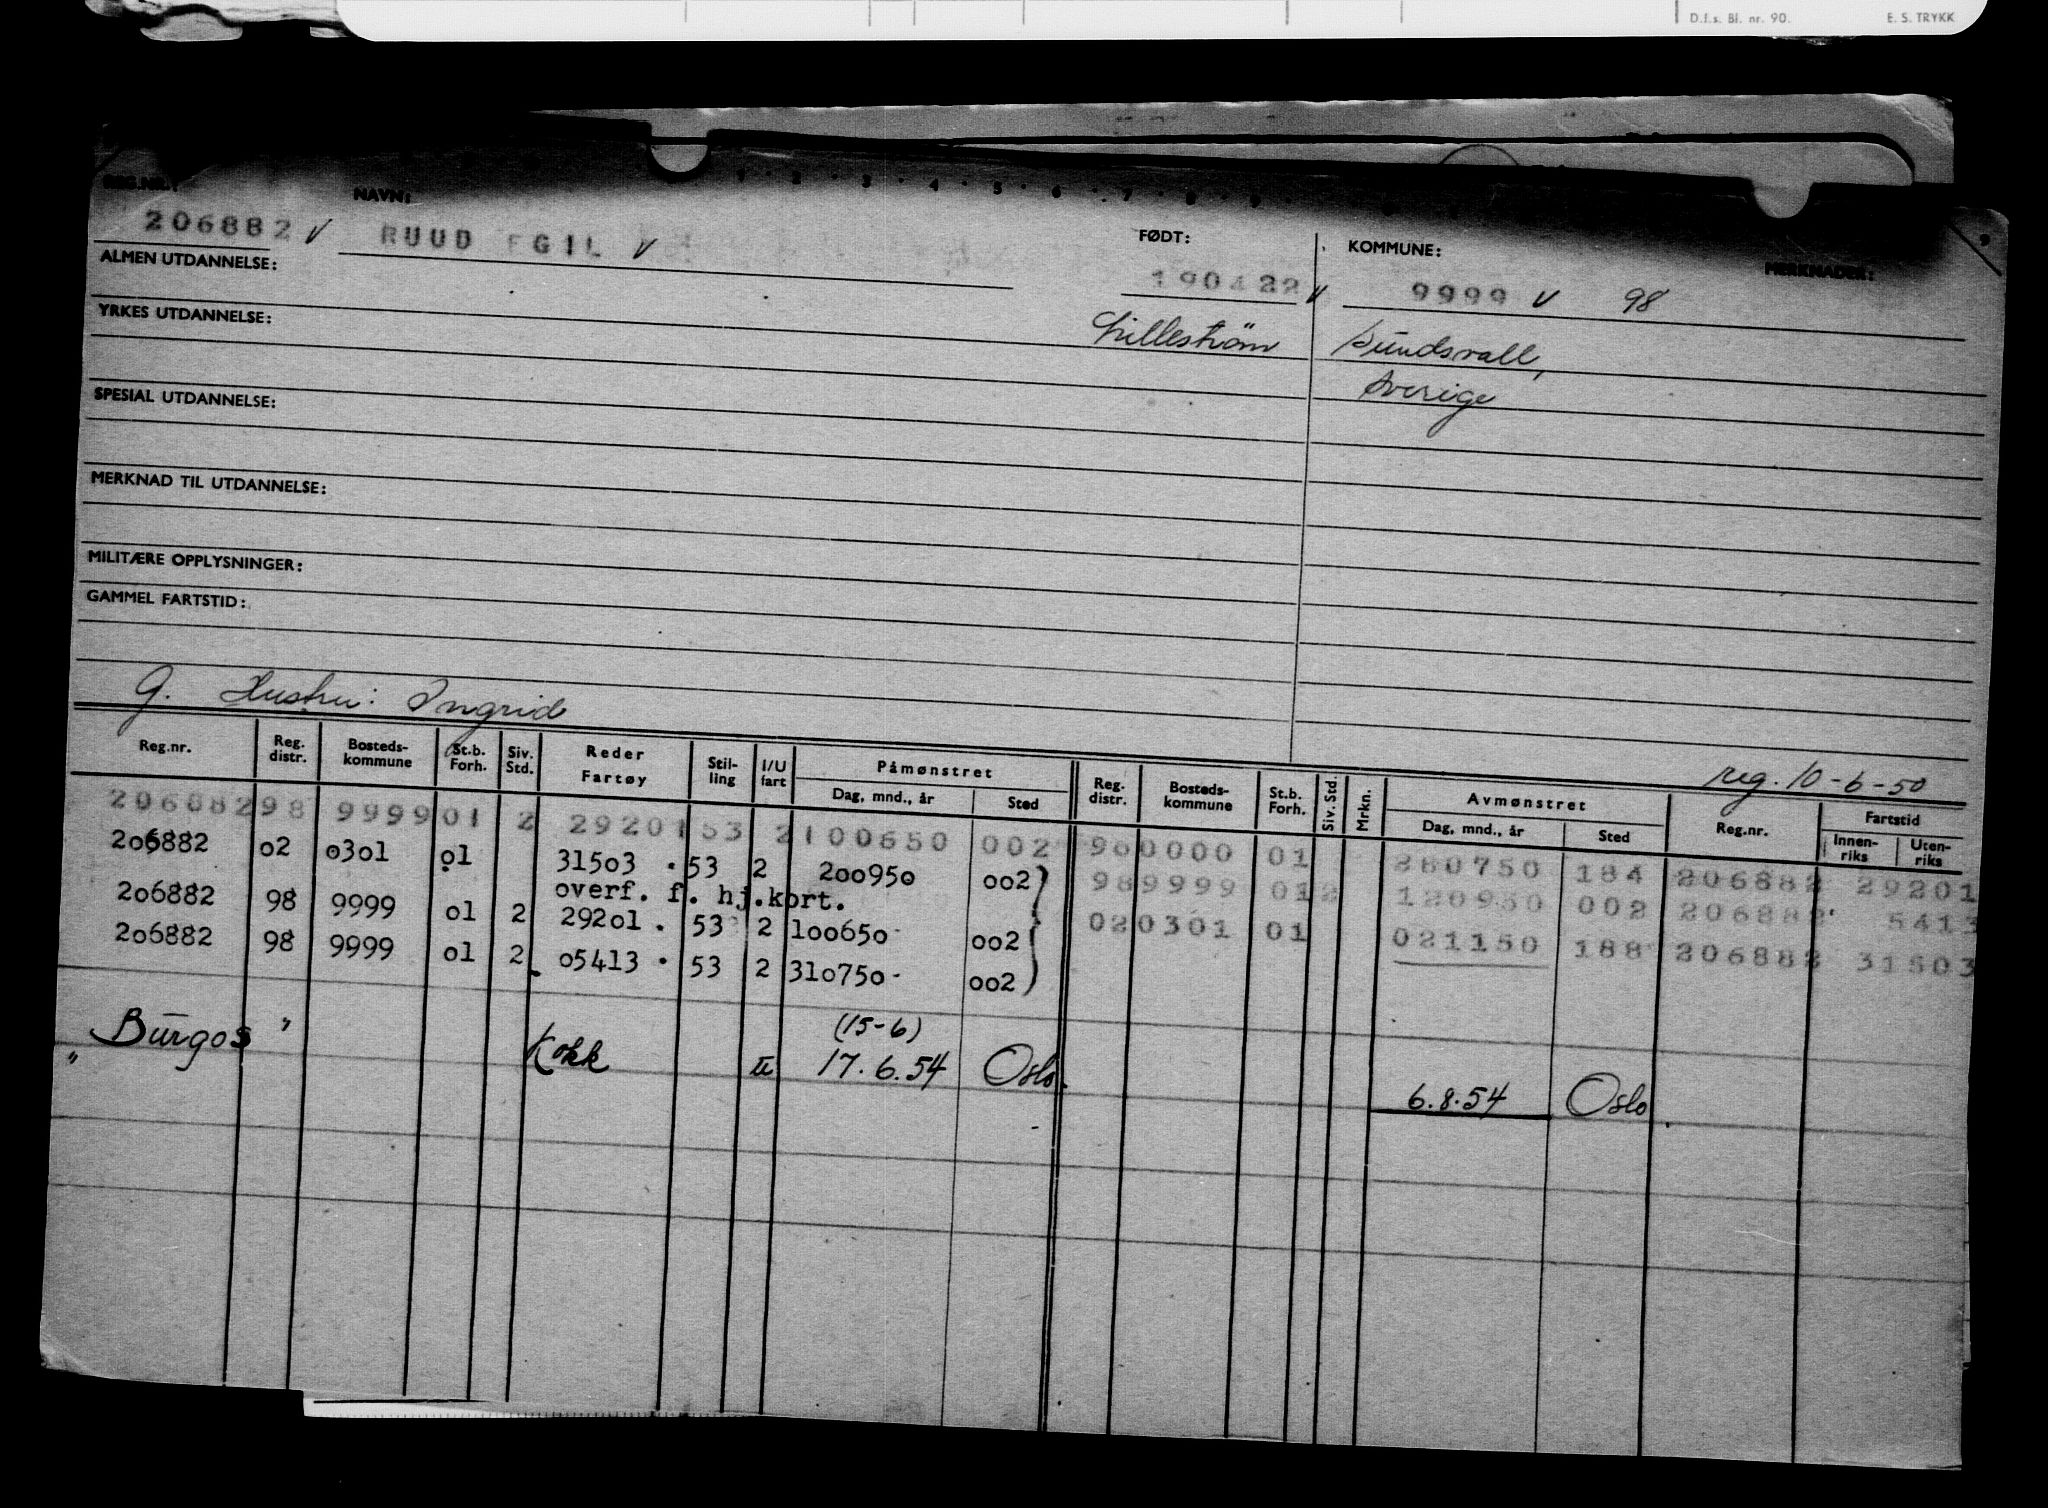 D.f.s. Bl. nr. 90. E. S. TRYKK
REG.NR.: NAVN: FØDT: KOMMUNE: MERKNADER:
206882 v RUUD EGIL v 190422 v 9999 v 98
ALMEN UTDANNELSE:
YRKES UTDANNELSE: Lillestrøm Sundsvall,
Sverige
SPESIAL UTDANNELSE:
MERKNAD TIL UTDANNELSE:
MILITÆRE OPPLYSNINGER:
GAMMEL FARTSTID:
G. Hustru: Ingrid
reg. 10-6-50
Reg.nr. Reg. distr. Bosteds-kommune St.b. Forh. Siv. Std. Reder Fartøy Stil-ling I/U fart Påmønstret Dag, mnd., år Sted Reg. distr. Bosteds-kommune St.b. Forh. Siv. Std. Mrkn. Avmønstret Dag, mnd., år Sted Reg.nr. Fartstid Innen-riks Uten-riks
206882 98 9999 01 2 29201 53 2 100650 002 980000 01 280750 184 206882 29201
206882 02 0301 01 31503 . 53 2 200950 002) 989999 01 2 120950 002 206882 5413
overf. f. hj.kort.
206882 98 9999 01 2 29201 . 53 2 100650- 002 020301 01 021150 188 206882 31503
206882 98 9999 01 2 05413 . 53 2 310750- 002)
(15-6)
" Burgos " Kokk u 17.6.54 Oslo. 6.8.54 Oslo